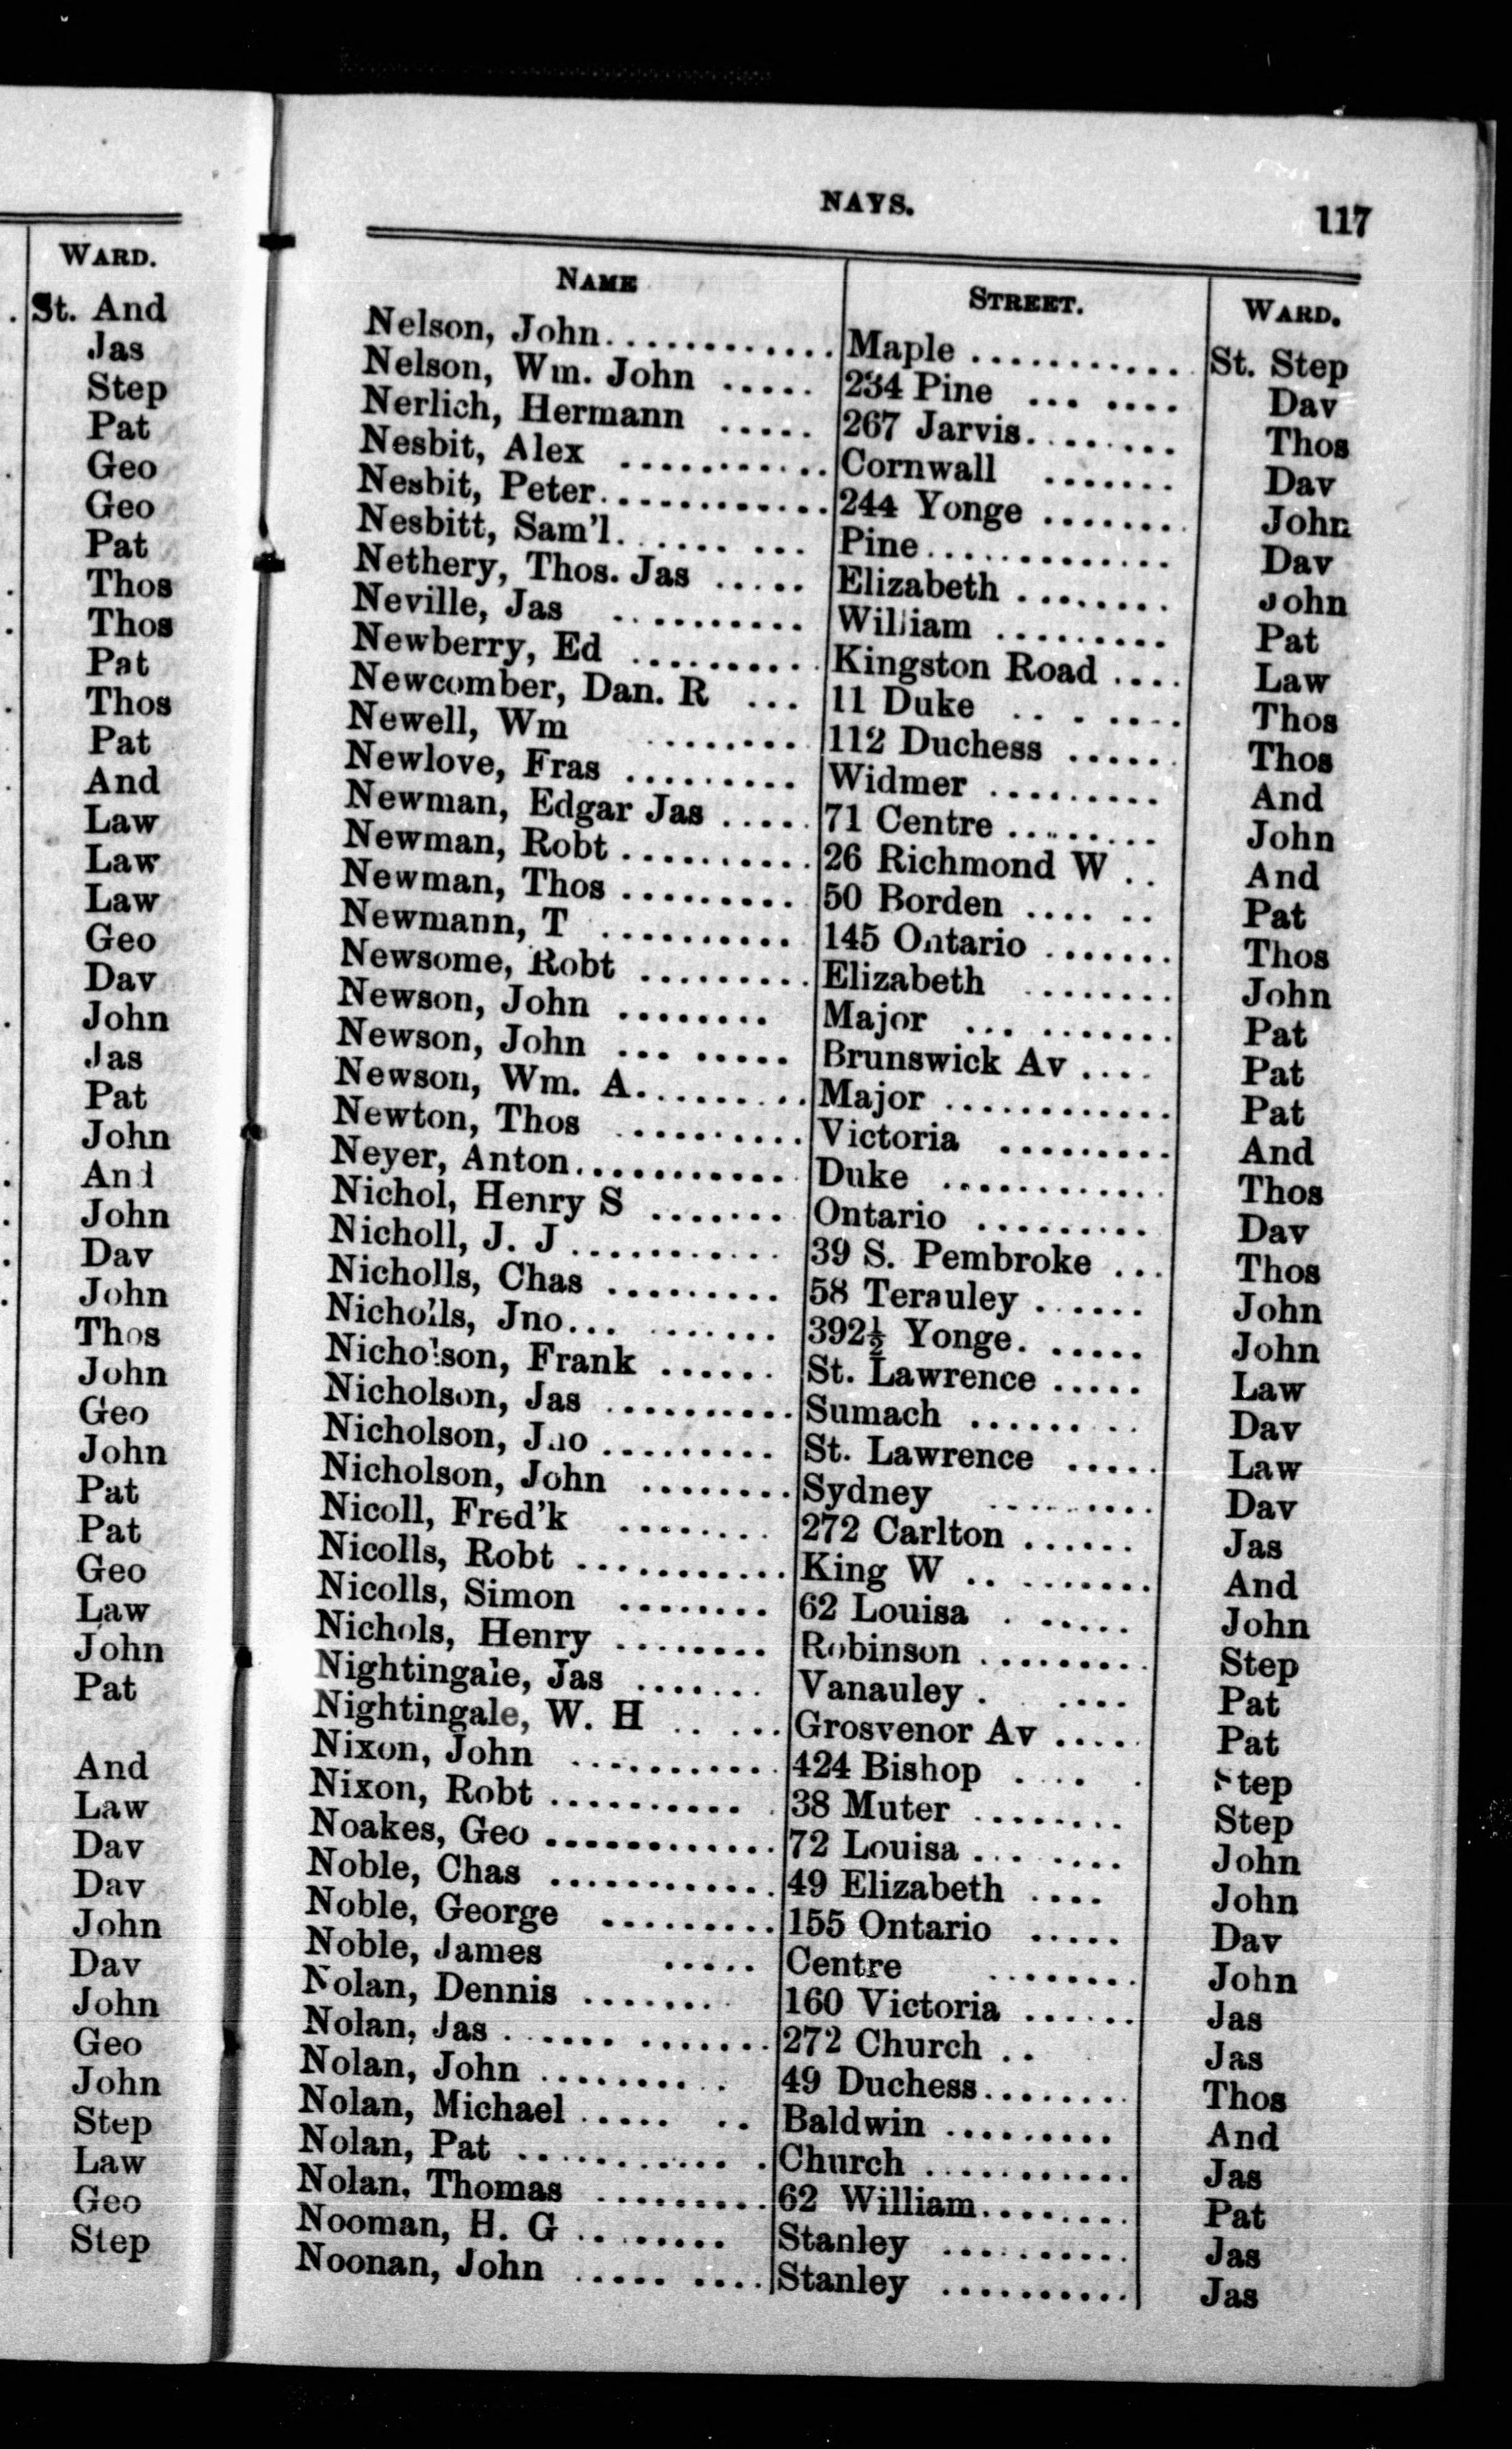 WARD.
St. And
Jas
Step
Pat
Geo
Geo
Pat
Thos
Thos
Pat
Thos
Pat
And
Law
Law
Law
Geo
Dav
John
Jas
Pat
John
And
John
Dav
John
Thos
John
Geo
John
Pat
Pat
Geo
Law
John
Pat
And
Law
Dav
Dav
John
Dav
John
Geo
John
Step
Law
Geo
Step
NAYS. 117
NAME STREET. WARD.
Nelson, John............ Maple ........... St. Step
Nelson, Wm. John ..... 234 Pine ... .... Dav
Nerlich, Hermann ..... 267 Jarvis........ Thos
Nesbit, Alex ........... Cornwall ....... Dav
Nesbit, Peter............ 244 Yonge ....... John
Nesbitt, Sam'l...... ... Pine............. Dav
Nethery, Thos. Jas ..... Elizabeth ........ John
Neville, Jas .......... William ......... Pat
Newberry, Ed .......... Kingston Road .... Law
Newcomber, Dan. R ... 11 Duke .. . .... Thos
Newell, Wm ........ 112 Duchess ...... Thos
Newlove, Fras ......... Widmer ......... And
Newman, Edgar Jas ..... 71 Centre ........ John
Newman, Robt .......... 26 Richmond W .. And
Newman, Thos ......... 50 Borden .... .. Pat
Newmann, T .......... 145 Ontario ....... Thos
Newsome, Robt ......... Elizabeth ........ John
Newson, John ........ Major ... ....... Pat
Newson, John ... ..... Brunswick Av .... Pat
Newson, Wm. A......... Major ............ Pat
Newton, Thos .......... Victoria ......... And
Neyer, Anton........... Duke ............ Thos
Nichol, Henry S ....... Ontario ......... Dav
Nicholl, J. J ........... 39 S. Pembroke ... Thos
Nicholls, Chas ......... 58 Terauley ...... John
Nicholls, Jno... ....... 392½ Yonge. ..... John
Nicholson, Frank ...... St. Lawrence ..... Law
Nicholson, Jas .......... Sumach ........ Dav
Nicholson, Jno ......... St. Lawrence ..... Law
Nicholson, John ........ Sydney ......... Dav
Nicoll, Fred'k ........ 272 Carlton ...... Jas
Nicolls, Robt ........... King W .. ....... And
Nicolls, Simon ........ 62 Louisa . ..... John
Nichols, Henry ........ Robinson ......... Step
Nightingale, Jas ....... Vanauley . .... Pat
Nightingale, W. H .. ... Grosvenor Av ..... Pat
Nixon, John ........... 424 Bishop .... . Step
Nixon, Robt .......... . 38 Muter ........ Step
Noakes, Geo ............ 72 Louisa ... .... John
Noble, Chas ............ 49 Elizabeth .... John
Noble, George ......... 155 Ontario ..... Dav
Noble, James ..... Centre ........ John
Nolan, Dennis ....... 160 Victoria ...... Jas
Nolan, Jas ...... ....... 272 Church .. Jas
Nolan, John .......... 49 Duchess........ Thos
Nolan, Michael ..... .. Baldwin ......... And
Nolan, Pat ............ . Church ........... Jas
Nolan, Thomas ......... 62 William........ Pat
Nooman, H. G ........ Stanley .......... Jas
Noonan, John ..... .... Stanley .......... Jas